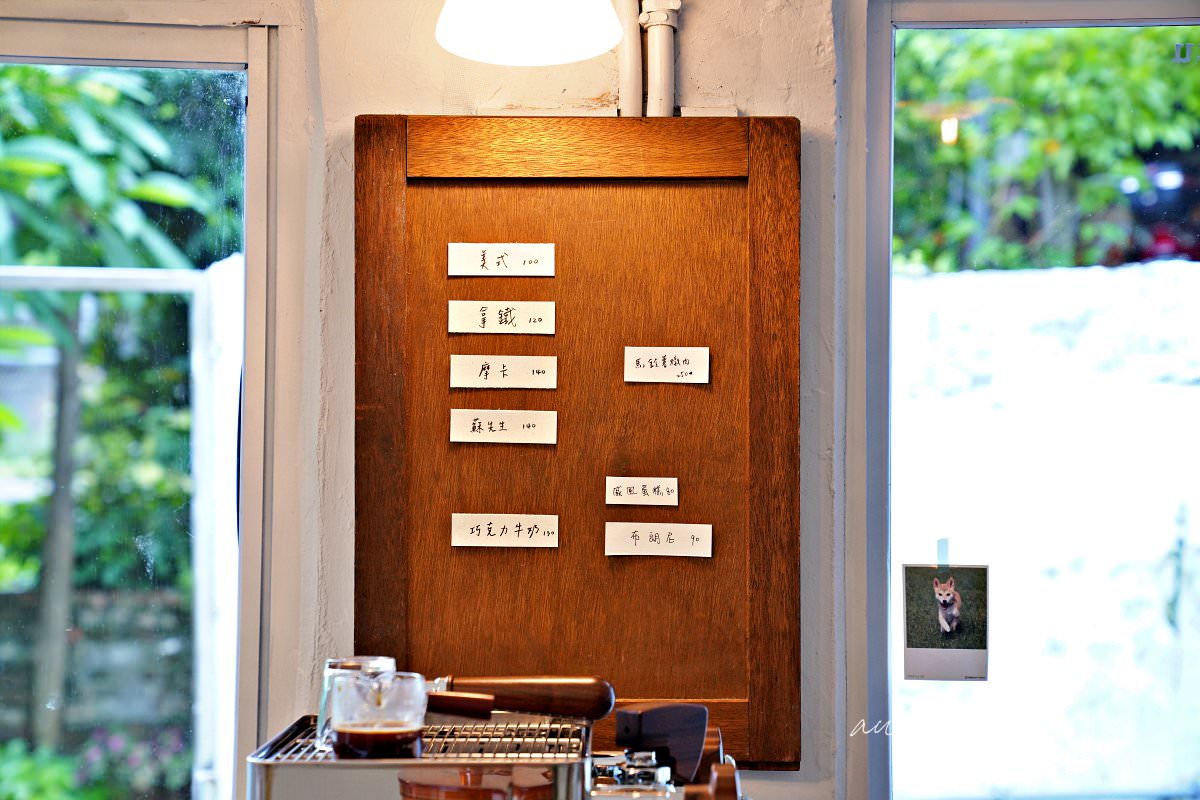 美式 100
拿鐵 120
摩卡 140
蘇先生 140
巧克力牛奶 130
馬鈴薯燉肉
250
威風蛋糕 80
布朗尼 90
au